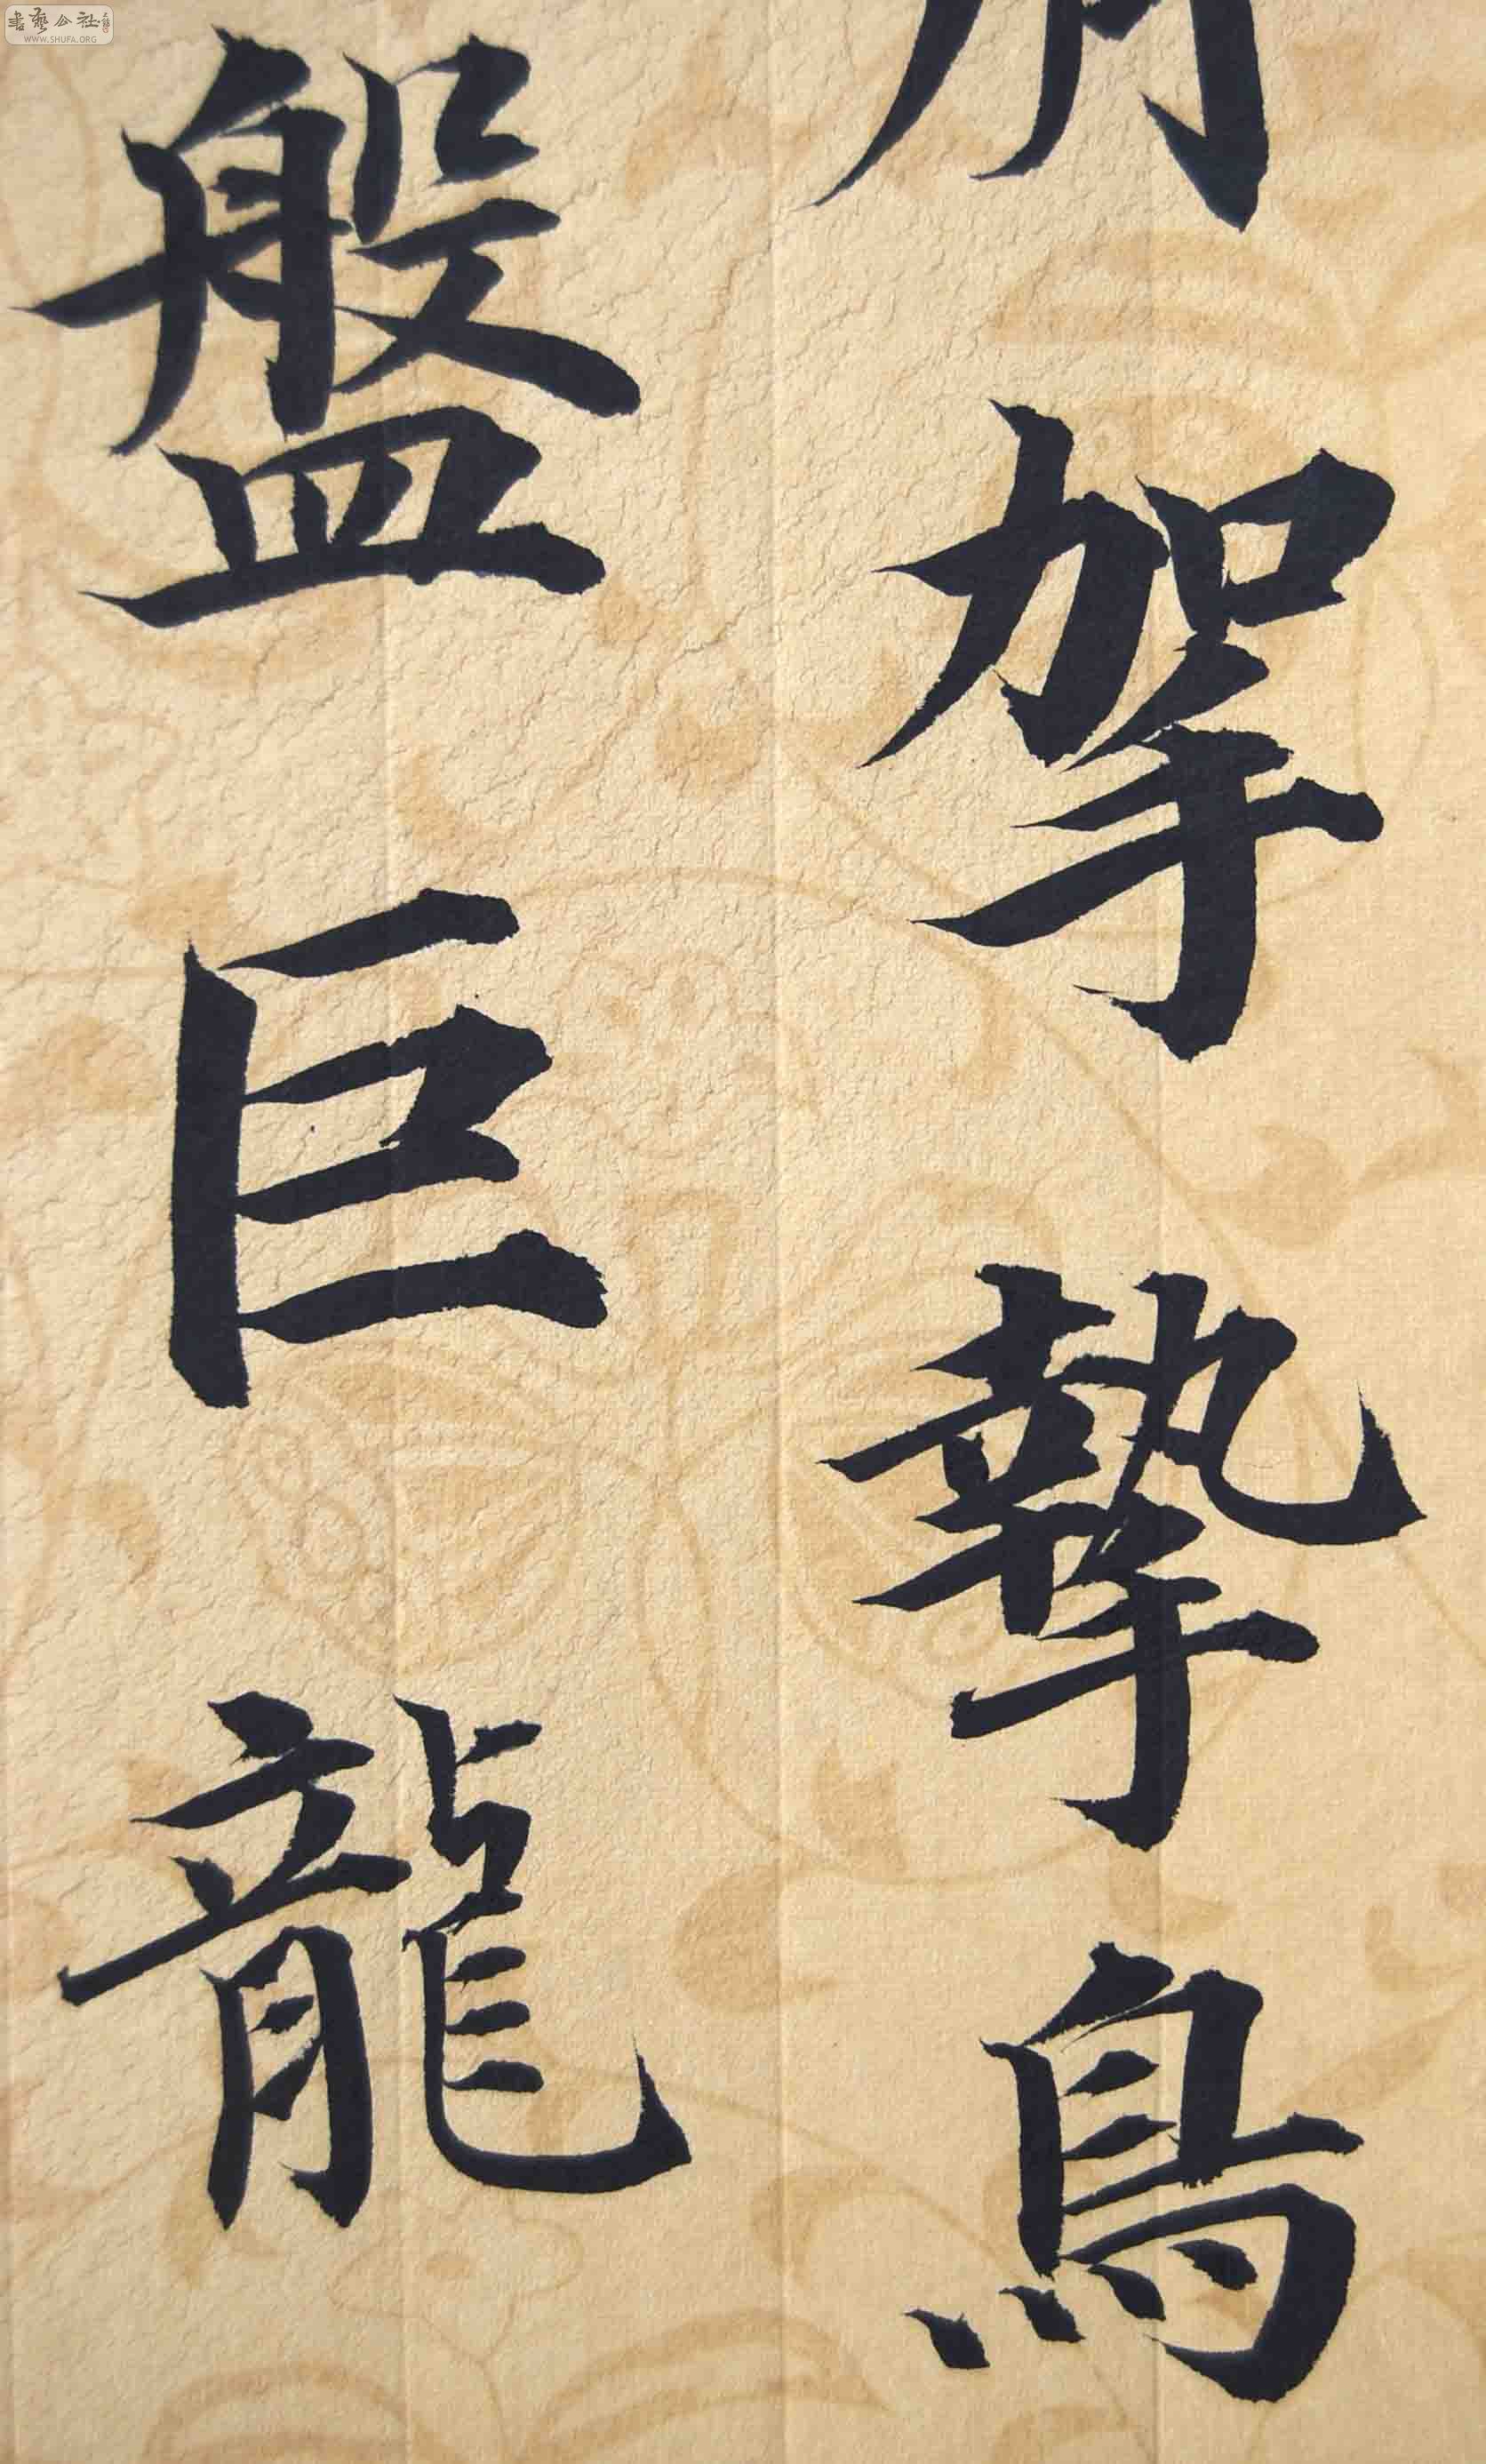 挐摯鳥
盤巨龍
書藝公社
WWW.SHUFA.ORG